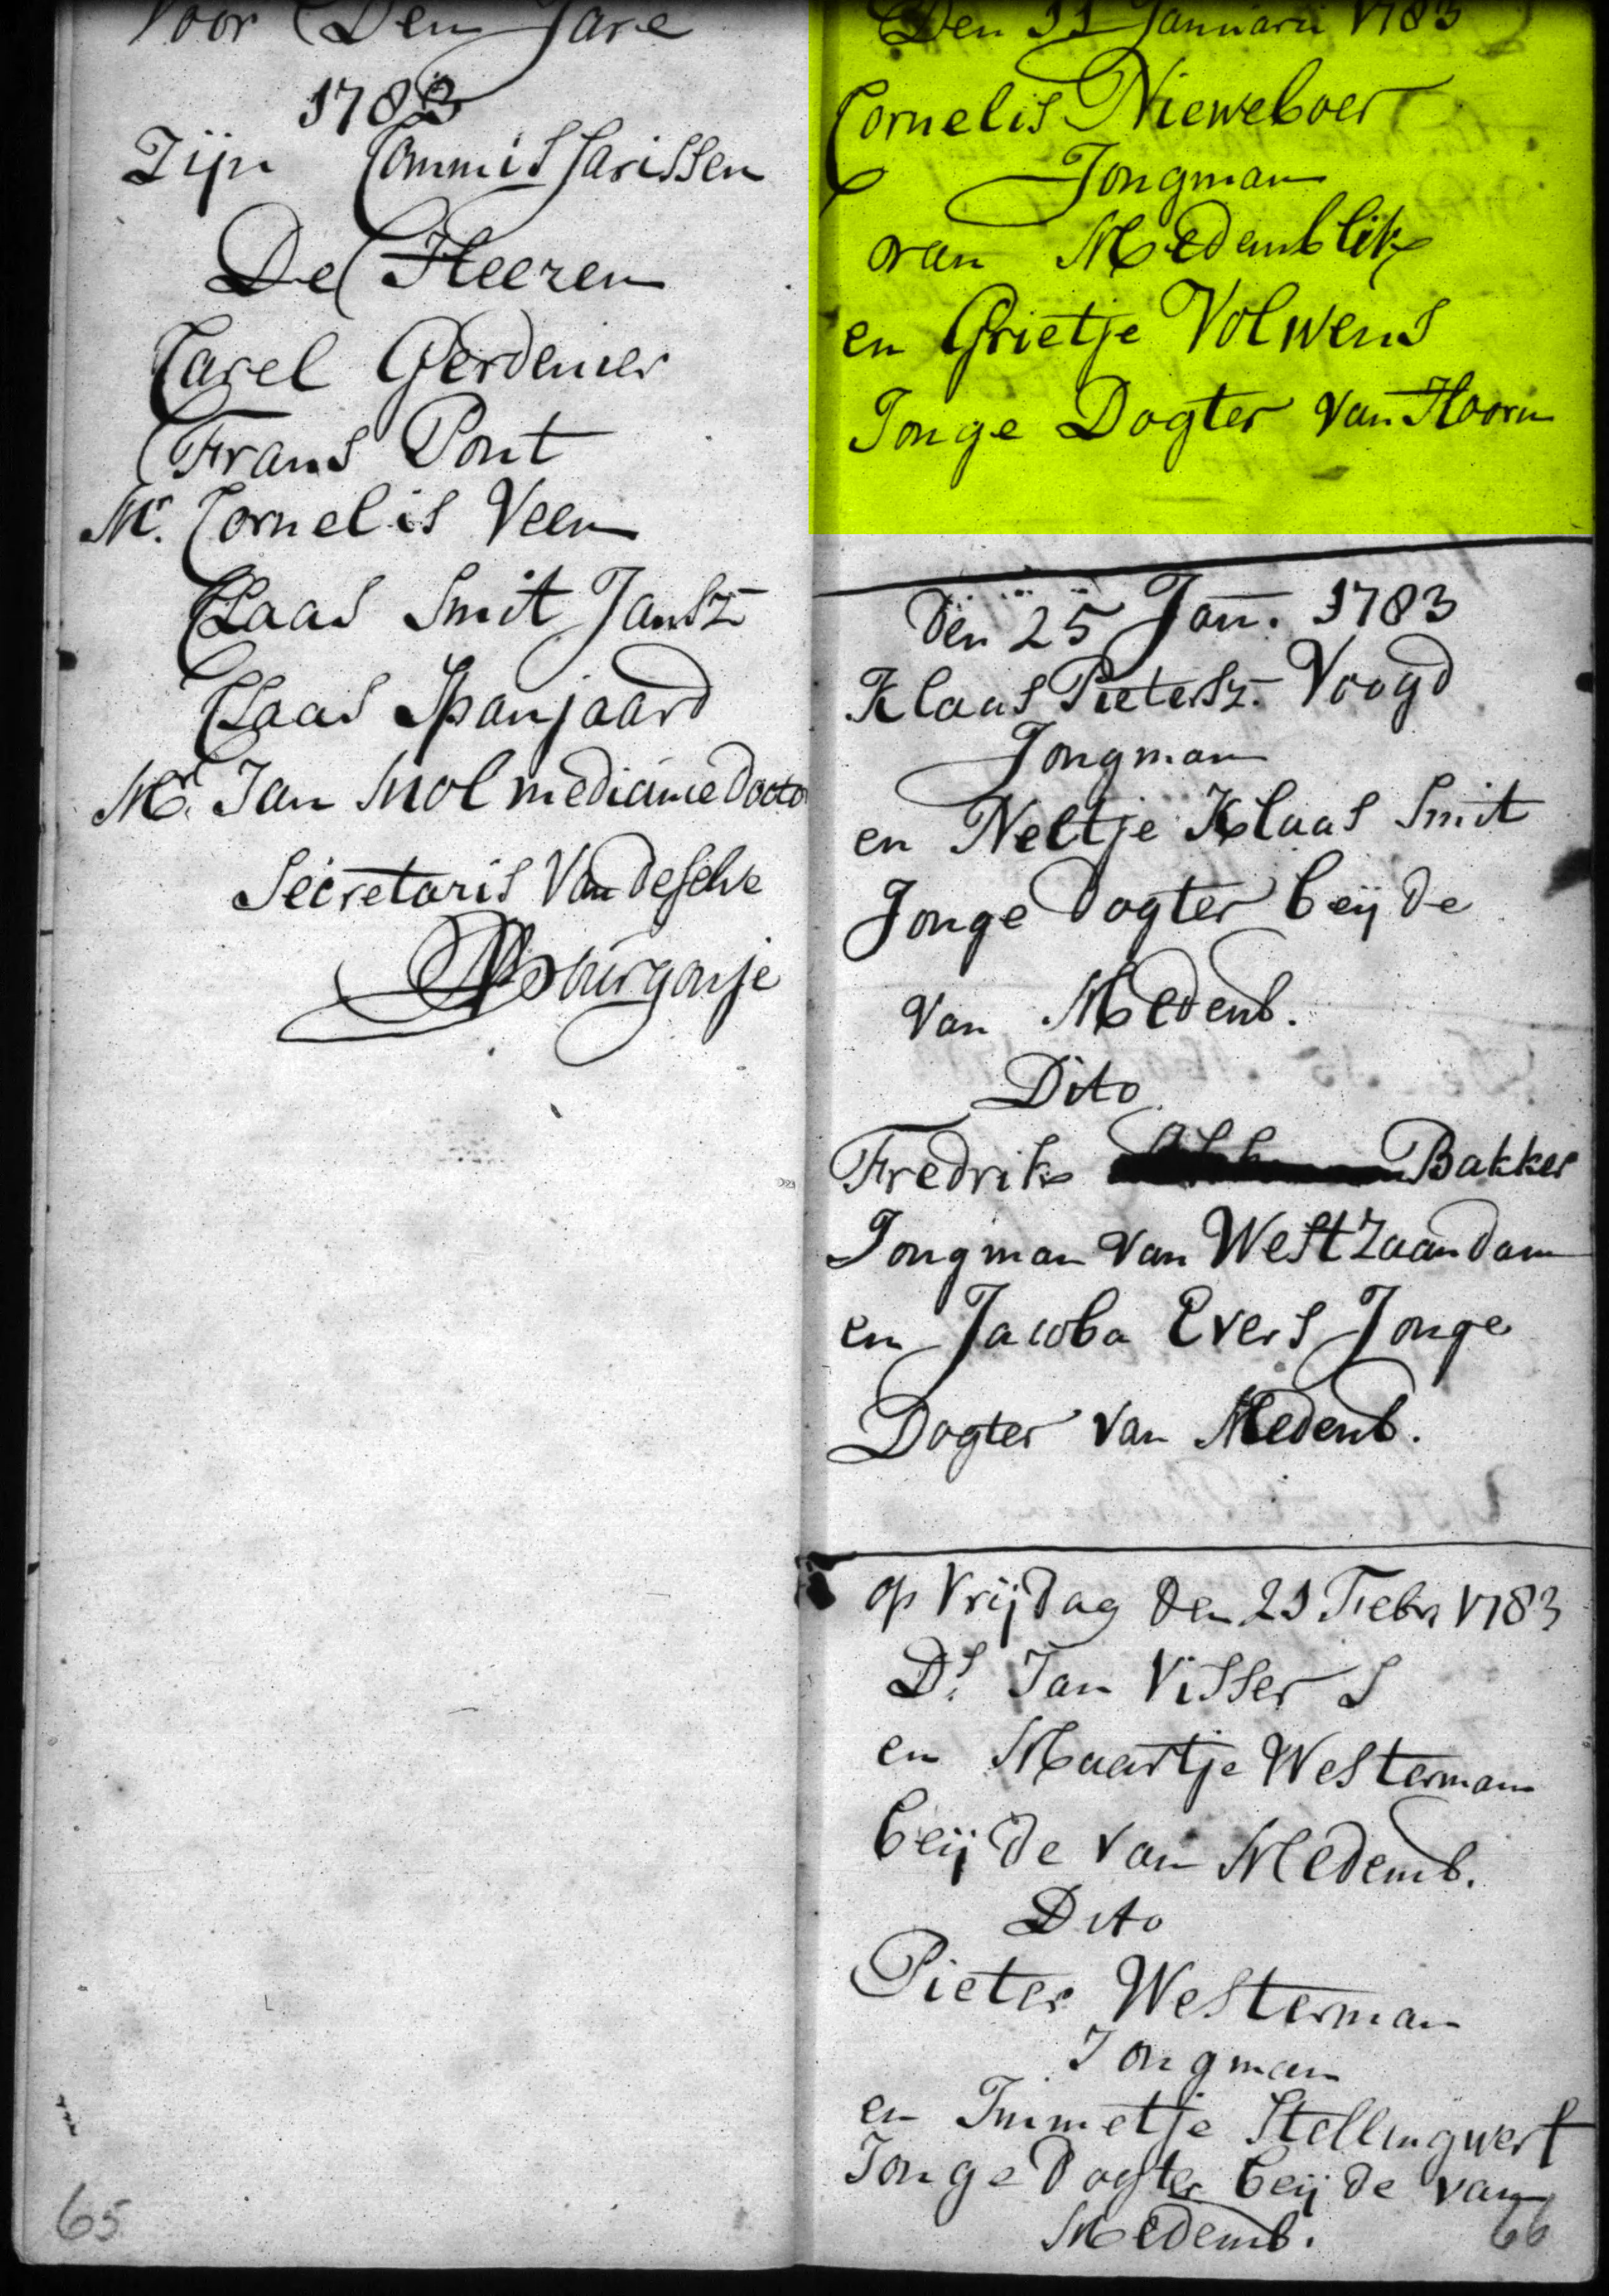 Voor Den Jare
1783
Zijn Commissarissen
De Heeren
Carel Gerdenier
Frans Pont
Mr. Cornelis Veen
Claas Smit Jansz
Claas Spanjaard
Mr. Jan Mol medicinie Docto
Secretaris Van deselve
Bourgonje
65
Den 11 Januarii 1783
Cornelis Nieweboer
Jongman
van Medemblik
en Grietje Volwens
Jonge Dogter van Hoorn
Den 25 Jan. 1783
Klaas Pietersz. Voogd
Jongman
en Neltje Klaas Smit
Jonge Dogter beijde
van Medemb.
Dito
Fredrik Bakker
Jongman van Westzaandam
en Jacoba Evers Jonge
Dogter van Medemb.
op Vrijdag den 21 Febr 1783
Ds. Jan Visser S
en Maartje Westerman
beijde van Medemb.
Dito
Pieter Westerman
Jongman
en Immetje Stellingwerf
Jonge Dogter beijde van
Medemb.
66